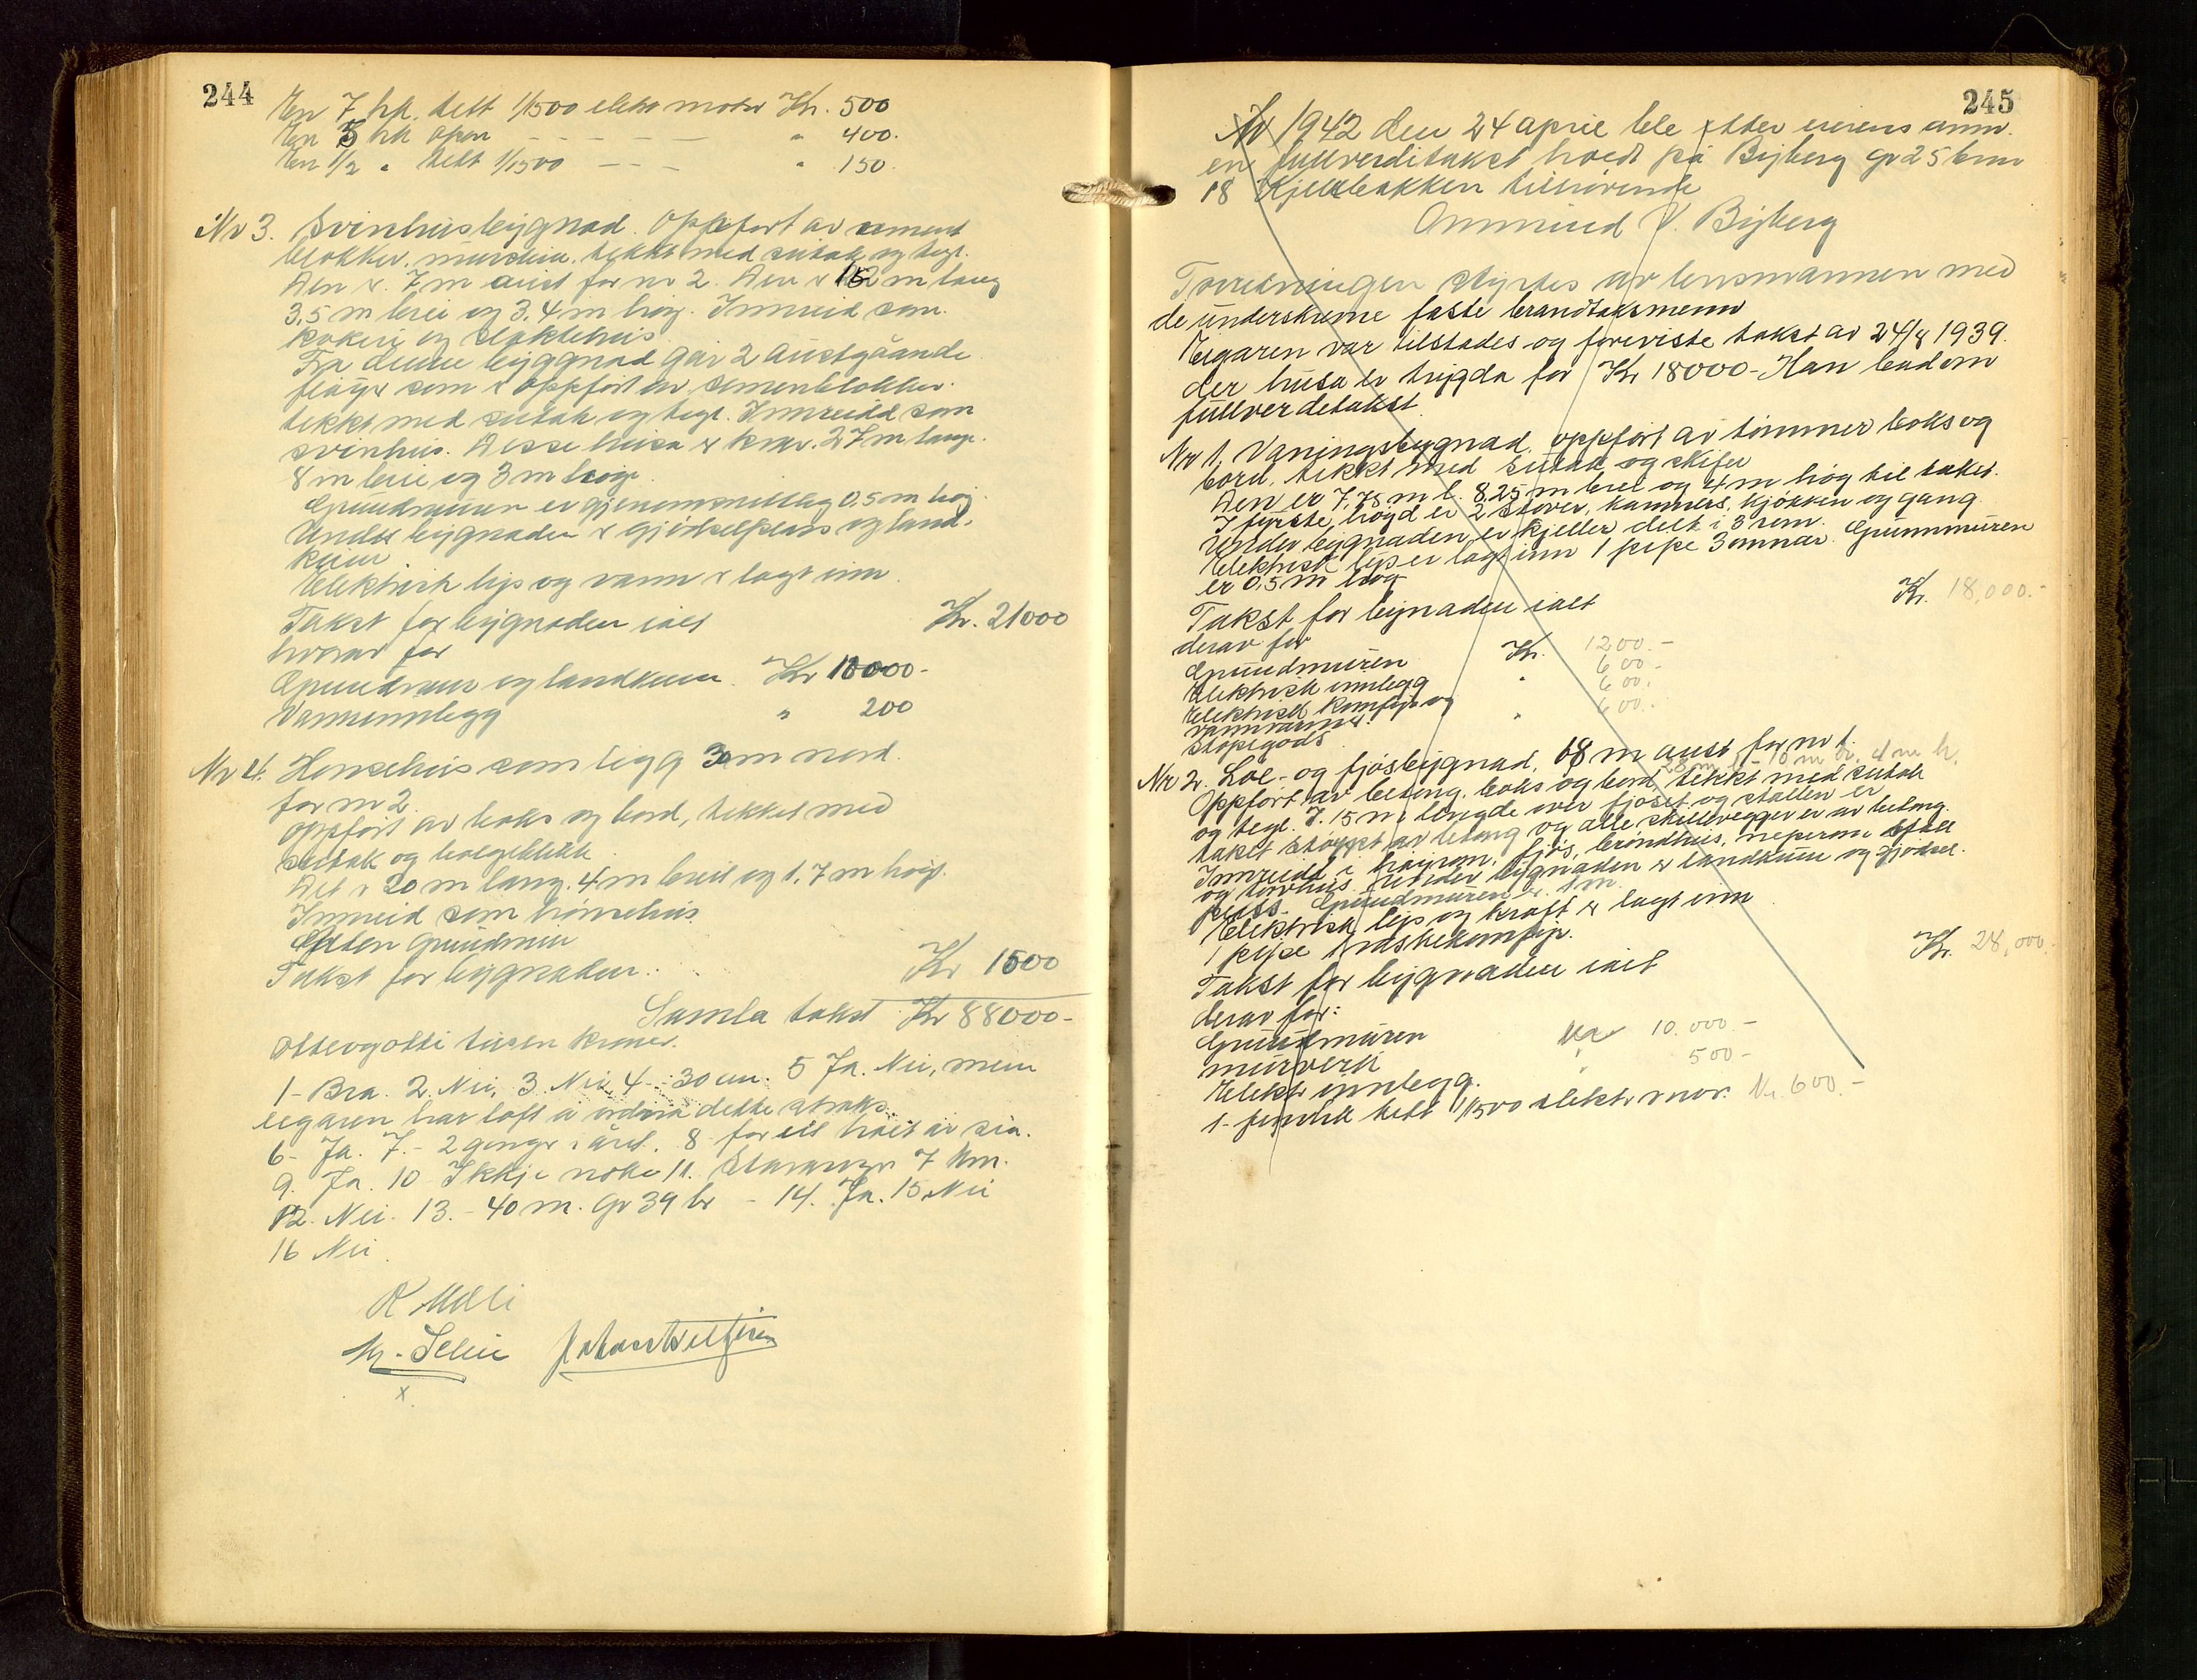 244
En 7 hk. tett 1/1500 elektr motor Kr. 500
En 5 hk open - - - - - " 400.
En 1/2 " tett 1/1500 - - - " 150.
Nr 3. Svinhusbygnad. Oppført av cement
blokker, murstein, tekkt med sutak og tegl.
Den er 7 m aust for nr 2. Den er 12 m lang
3,5 m brei og 3,4 m høg. Innreid som
kokeri og slaktehus
Fra denne byggnad går 2 austgåande
fløyer som er oppført av sementblokker
tekkt med sutak og tegl. Innreidd som
svinhus. Desse husa er kvar. 27 m lange.
8 m brei og 3 m høge
Grundmuren er gjenomsnittleg 0,5 m høg.
Under bygnaden er gjødselplass og land-
kum
Elektrisk lys og vann er lagt inn.
Takst for bygnaden ialt Kr. 21000
hvorav for
Grundmur og landkum Kr 10000-
Vanninnlegg " 200
Nr 4. Hønsehus som ligg 30 m nord
for nr 2.
Oppført av boks og bord, tekket med
sutak og bølgeblikk.
Det er 20 m lang. 4 m breit og 1,7 m høgt.
Innreid som hønsehus
Uten grundmur
Takst for bygnaden. Kr 1500
Samla takst Kr 88000-
Åtteogåtti tusen kroner.
1- Bra. 2. Nei, 3. Nei 4- 30 cm. 5 Ja. Nei, men
eigaren har loft å ordna dette straks.
6- Ja. 7.- 2 gonger i året. 8- for eit halvt år sia.
9. Ja. 10 Ikkje noko 11. Stavanger 7 km.
12. Nei. 13.- 40 m. Gr 39 br - 14. Ja. 15. Nei
16 Nei.
M. Selie
x
245
År 1942 den 24 april ble etter eierens anm.
en fullverditakst holdt på Byberg gr 25 bnr
18 Kjellebakken tilhørende
Ommund V. Byberg
Forretningen styrtes av lensmannen med
de underskrevne faste branntakstmenn
Eigaren var tilstades og foreviste takst av 24/8 1939.
der husa er trygda for Kr 18000- Han bad om
fullverdetakst.
Nr 1. Våningsbygnad, oppført av tømmer boks og
bord, tekkt med sutak og skifer
Den er 7,75 m l. 8,25 m brei og 4 m høg til taket.
I fyrste høgd er 2 stover, kammers, kjøkken og gang.
Under bygnaden er kjeller delt i 3 rom.
Elektrisk lys er lagt inn 1 pipe 3 omnar. Grunnmuren
er 0,5 m høg
Takst for bygnaden ialt Kr. 18,000.-
derav for
Grundmuren Kr. 1200.-
Elektrisk innlegg " 600.-
Elektrisk komfyr og 600.
vannvarmer " 600.-
støpegods
Nr 2. Løe- og fjøsbygnad, 18 m aust for nr 1.
28 m l - 10 m br. 4 m h.
Oppført av betong, boks og bord, tekkt med sutak
og tegl. I 15 m lengde over fjøset og stallen er
taket støypt av betong og alle skillevegger er av betong.
Innreidd i høyrom, fjøs, brøndhus, neperom stall
og torvhus. Under bygnaden er landkum og gjødsel-
plass. Grundmuren er 1 m
Elektrisk lys og kraft er lagt inn
1 pipe 1 vaskekomfyr.
Takst for bygnaden ialt Kr. 28,000.-
derav for:
Grundmuren Kr 10.000.-
murverk " 500-
Elektr innlegg.
1- fem hk tett 1/1500 elektr mor. Kr. 600.-